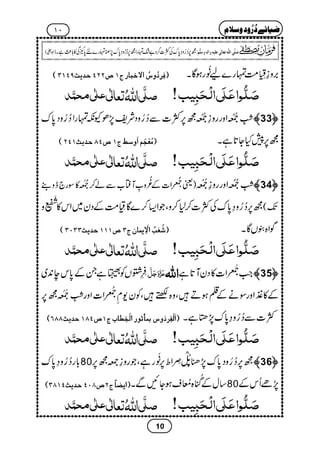 ضیائے دُرُود و سلام
۱۰
فرمانِ مصطفےٰ
بروزِ قیامت تمہارے لیے نور ہو گا۔ (فِردوسُ الاخبار ج۱ ص۴۲۲ حدیث۳۱۴۹)
صَلُّوا عَلَی الْحَبِیب! صلَّی اللہُ تعالٰی علٰی محمَّد
﴿33﴾ شبِ جُمُعہ اور روزِ جُمُعہ مجھ پر کثرت سے دُرُود شریف پڑھو کیونکہ تمہارا دُرُودِ پاک
مجھ پر پیش کیا جاتا ہے۔ (مُعْجَم اَوسط ج۱ ص۸۴ حدیث۲۴۱)
صَلُّوا عَلَی الْحَبِیب! صلَّی اللہُ تعالٰی علٰی محمَّد
﴿34﴾ شبِ جُمُعہ اور روزِ جُمُعہ (یعنی جُمعرات کے غُروبِ آفتاب سے لے کر جُمُعہ کا سورج ڈوبنے
تک) مجھ پر دُرُودِ پاک کی کثرت کر لیا کرو، جو ایسا کرے گا قیامت کے دن میں اس کا شفیع و
گواہ بنوں گا۔ (شُعَبُ الْاِیمان ج۳ ص۱۱۱ حدیث۳۰۳۳)
صَلُّوا عَلَی الْحَبِیب! صلَّی اللہُ تعالٰی علٰی محمَّد
﴿35﴾ جب جُمعرات کا دن آتا ہے اللہ عَزَّوَجَلَّ فرشتوں کو بھیجتا ہے جن کے پاس چاندی
کے کاغذ اور سونے کے قلم ہوتے ہیں وہ لکھتے ہیں، کون یومِ جُمعرات اور شبِ جُمُعہ مجھ پر
کثرت سے دُرُودِ پاک پڑھتا ہے۔ (اَلْفِردوس بمأثور الْخِطاب ج۱ ص۱۸۴ حدیث۶۸۸)
صَلُّوا عَلَی الْحَبِیب! صلَّی اللہُ تعالٰی علٰی محمَّد
﴿36﴾ مجھ پر دُرُودِ پاک پڑھنا پُل صراط پر نور ہے، جو روزِ جمعہ مجھ پر 80 بار دُرُودِ پاک
پڑھے اُس کے 80 سال کے گناہ معاف ہو جائیں گے۔ (ایضاً ج۲ ص۴۰۸ حدیث۳۸۱۴)
صَلُّوا عَلَی الْحَبِیب! صلَّی اللہُ تعالٰی علٰی محمَّد
10